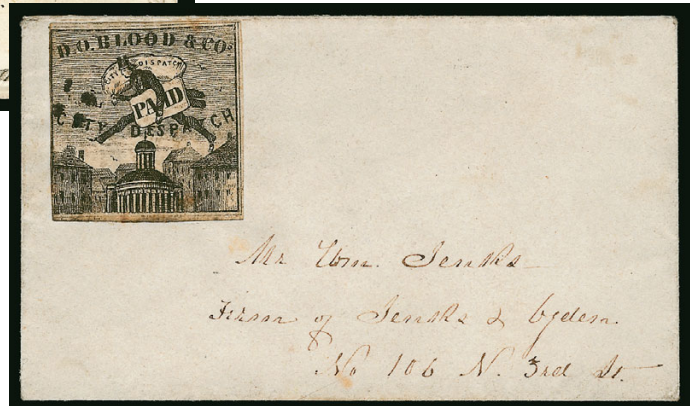 D.O. BLOOD & CO'S
CITY DISPATCH
PAID
CITY DESPATCH
Mr Wm. Jenks
Firm of Jenks & Ogden.
No 106 N. 3rd St.